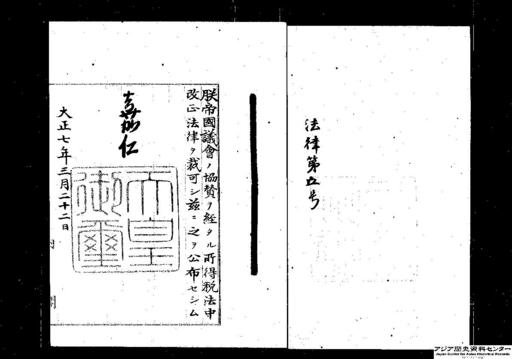 法律第五号
朕帝國議會ノ協賛ヲ経タル所得税法中
改正法律ヲ裁可シ茲ニ之ヲ公布セシム
嘉仁
天皇
御璽
大正七年三月二十二日
内閣
アジア歴史資料センター
Japan Center for Asian Historical Records